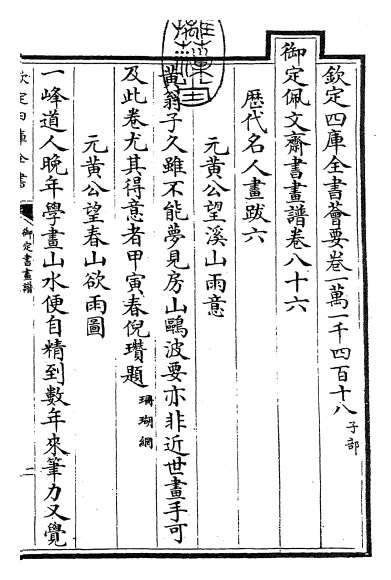 欽定四庫全書薈要卷一萬一千四百十八 子部
御定佩文齋書畫譜卷八十六
歴代名人畫跋六
元黄公望溪山雨意
黄翁子久雖不能夢見房山鷗波要亦非近世畫手可
及此卷尤其得意者甲寅春倪瓚題 珊瑚網
元黄公望春山欲雨圖
一峰道人晚年學畫山水便自精到數年來筆力又覺
欽定四庫全書
御定書畫譜
一